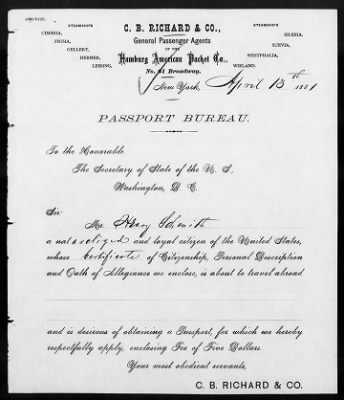 STEAMSHIPS
CIMBRIA,
FRISIA,
GELLERT,
HERDER,
LESSING,
C. B. RICHARD & CO.,
General Passenger Agents
OF THE
Hamburg American Packet Co.,
No. 61 Broadway.
STEAMSHIPS
SILESIA,
SUEVIA,
WESTPHALIA,
WIELAND.
New York, April 13th 1881
PASSPORT BUREAU.
To the Honorable
The Secretary of State of the U. S,
Washington, D. C.
Sir:
Mr. Henry
a naturalized and loyal citizen of the United States,
whose Certificate of Citizenship, Personal Description
and Oath of Allegiance we enclose, is about to travel abroad
and is desirous of obtaining a Passport, for which we hereby
respectfully apply, enclosing Fee of Five Dollars.
Your most obedient servants,
C. B. RICHARD & CO.